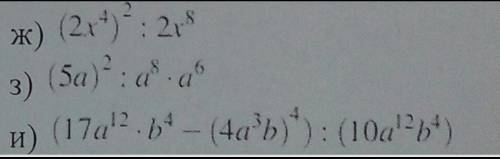 ж) (2x⁴)² : 2x⁸
з) (5a)² : a⁸ · a⁶
и) (17a¹² · b⁴ − (4a³b)⁴) : (10a¹²b⁴)